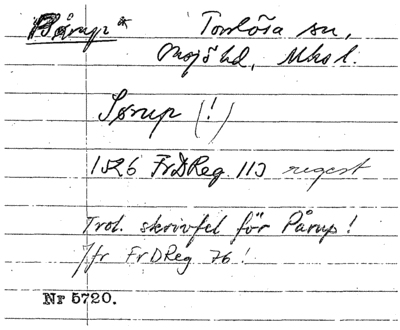 Bårup
Torrlösa sn,
Onsjö hd, Mhs l.
Sørup (!)
1526 FrDReg 113 regest
Trol. skrivfel för Pårup!
Jfr FrDReg 76!
Nr 5720.